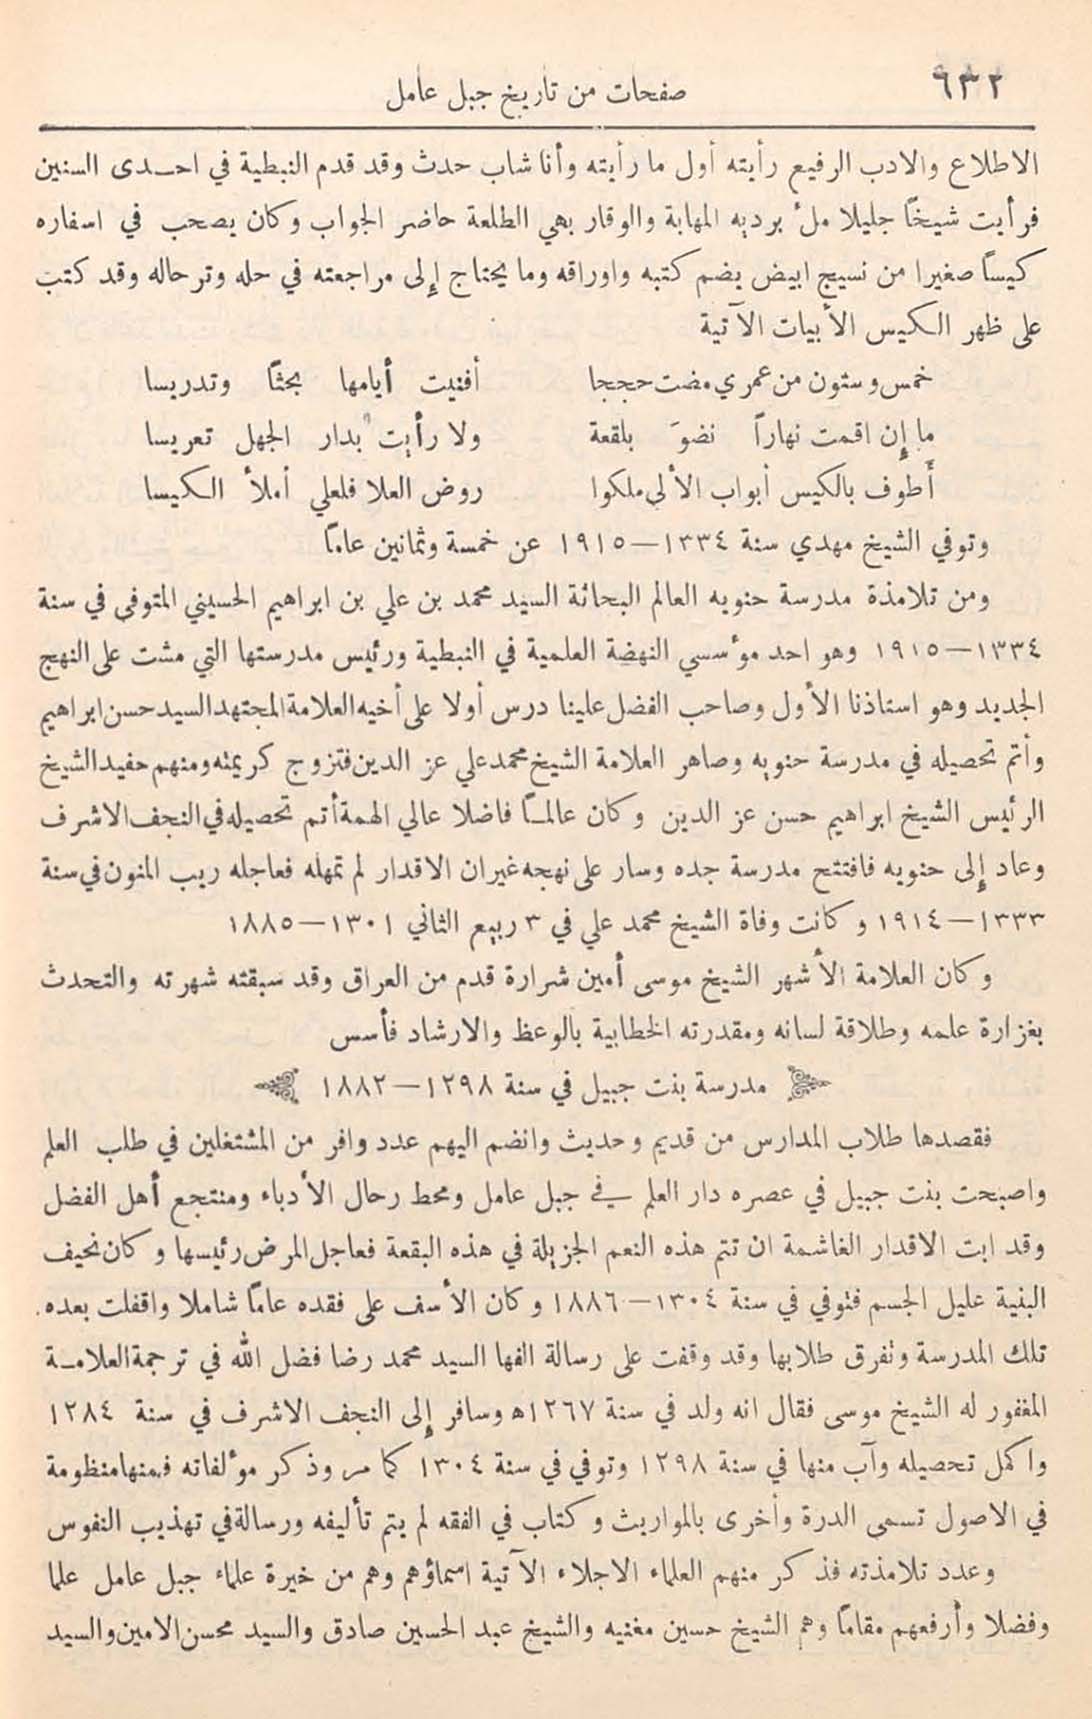 ٦٣٢
صفحات من تاريخ جبل عامل
الاطلاع والادب الرفيع رأيته أول ما رأيته وأنا شاب حدث وقد قدم النبطية في احدى السنين
فرأيت شيخاً جليلا ملء برديه المهابة والوقار بهي الطلعة حاضر الجواب وكان يصحب في اسفاره
كيساً صغيرا من نسيج ابيض يضم كتبه واوراقه وما يحتاج إلى مراجعته في حله وترحاله وقد كتب
على ظهر الكيس الأبيات الآتية
خمس وستون من عمري مضت حججا أفنيت أيامها بحثاً وتدريسا
ما إن اقمت نهاراً نضوَ بلقعة ولا رأيت بدار الجهل تعريسا
أَطوف بالكيس أبواب الألى ملكوا روض العلا فلعلي أملأ الكيسا
وتوفي الشيخ مهدي سنة ١٣٣٤—١٩١٥ عن خمسة وثمانين عاماً
ومن تلامذة مدرسة حنويه العالم البحاثة السيد محمد بن علي بن ابراهيم الحسيني المتوفى في سنة
١٣٣٤—١٩١٥ وهو احد موءسسي النهضة العلمية في النبطية ورئيس مدرستها التي مشت على النهج
الجديد وهو استاذنا الأول وصاحب الفضل علينا درس أولا على أخيه العلامة المجتهد السيد حسن ابراهيم
وأتم تحصيله في مدرسة حنويه وصاهر العلامة الشيخ محمد علي عز الدين فتزوج كريمته ومنهم حفيد الشيخ
الرئيس الشيخ ابراهيم حسن عز الدين وكان عالماً فاضلا عالي الهمة أتم تحصيله في النجف الاشرف
وعاد إلى حنويه فافتتح مدرسة جده وسار على نهجه غيران الاقدار لم تمهله فعاجله ريب المنون في سنة
١٣٣٣—١٩١٤ وكانت وفاة الشيخ محمد علي في ٣ ربيع الثاني ١٣٠١—١٨٨٥
وكان العلامة الأشهر الشيخ موسى أمين شرارة قدم من العراق وقد سبقته شهرته والتحدث
بغزارة علمه وطلاقة لسانه ومقدرته الخطابية بالوعظ والارشاد فأسس
مدرسة بنت جبيل في سنة ١٢٩٨—١٨٨٢
فقصدها طلاب المدارس من قديم وحديث وانضم اليهم عدد وافر من المشتغلين في طلب العلم
واصبحت بنت جبيل في عصره دار العلم في جبل عامل ومحط رحال الأدباء ومنتجع أهل الفضل
وقد ابت الاقدار الغاشمة ان تتم هذه النعم الجزيلة في هذه البقعة فعاجل المرض رئيسها وكان نحيف
البنية عليل الجسم فتوفي في سنة ١٣٠٤—١٨٨٦ وكان الأسف على فقده عاماً شاملا واقفلت بعده.
تلك المدرسة وتفرق طلابها وقد وقفت على رسالة الفها السيد محمد رضا فضل الله في ترجمة العلامة
المغفور له الشيخ موسى فقال انه ولد في سنة ١٢٦٧ه وسافر إلى النجف الاشرف في سنة ١٢٨٤
واكمل تحصيله وآب منها في سنة ١٢٩٨ وتوفي في سنة ١٣٠٤ كما مر وذكر موءلفاته فمنها منظومة
في الاصول تسمى الدرة وأخرى بالمواريث وكتاب في الفقه لم يتم تأليفه ورسالة في تهذيب النفوس
وعدد تلامذته فذكر منهم العلماء الاجلاء الآتية اسماؤهم وهم من خيرة علماء جبل عامل علما
وفضلا وأرفعهم مقاماً وهم الشيخ حسين مغنيه والشيخ عبد الحسين صادق والسيد محسن الامين والسيد